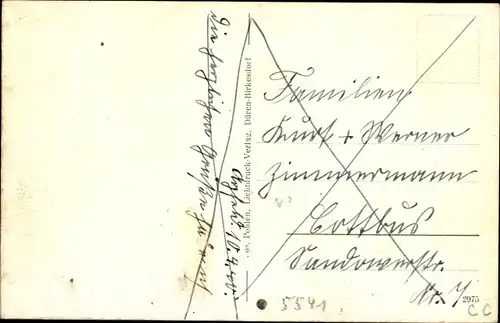 Die herzlichsten Grüße
Jos. Pohlen, Lichtdruck-Verlag, Düren-Birkesdorf
Familien
Kurt + Werner
Zimmermann
Cottbus
Sandowerstr.
Nr. 7
2975
5541
CC